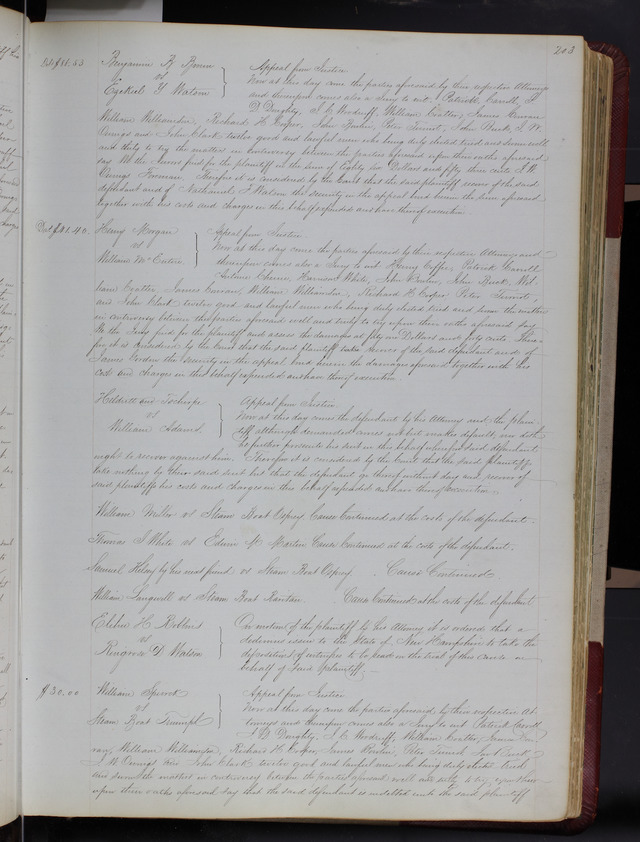 203
Benjamin F
vs
Ezekiel Y Watson
Appeal from Justice
Now at this day came the parties aforesaid by their respective Attorneys
and thereupon comes also a Jury to wit, Patrick Carroll, J
D Doughty, J C Woodruff, William Crotter, James
William Williamson, Richard H Cooper, John, Peter, John Buck, J W
and John Clark twelve good and lawful men who being duly elected tried and sworn well
and truly to try the matter in controversy between the parties aforesaid upon their oaths aforesaid
say We the Jurors find for the plaintiff in the sum of Eighty six Dollars and fifty three cents J W
Foreman. Therefore it is considered by the Court that the said plaintiff recover of the said
defendant and of Nathaniel J Watson the security in the appeal bond herein the sum aforesaid
together with his costs and charges in this behalf expended and have thereof execution
Henry Morgan
vs
William McCutin
Appeal from Justice
Now at this day comes the parties aforesaid by their respective Attorneys and
thereupon comes also a Jury to wit Henry Coffee, Patrick Carroll
Harrison White, John, John Buck, Wil-
liam Crotter, James, William Williamson, Richard H Cooper, Peter
and John Clark twelve good and lawful men who being duly elected tried and sworn the matter
in controversy between the parties aforesaid well and truly to try upon their oaths aforesaid say
We the Jury find for the plaintiff and assess the damages at fifty one Dollars and forty cents There-
fore it is considered by the Court that the said plaintiff recover of the said defendant and of
James the security in the appeal bond herein the damages aforesaid together with his
costs and charges in this behalf expended and have thereof execution
vs
William Adams.
Appeal from Justice
Now at this day comes the defendant by his Attorney and the plain-
tiff although demanded comes not but makes default, nor doth
he further prosecute his suit in this behalf wherefore said defendant
ought to recover against him. Therefore it is considered by the Court that the said plaintiffs
take nothing by their said suit but that the defendant go thereof without day and recover of
said plaintiffs his costs and charges in this behalf expended and have thereof execution
William Miller vs Steam Boat Osprey Cause Continued at the costs of the defendant.
Thomas J White vs Edwin W Martin Cause Continued at the costs of the defendant.
Samuel Kelsey by his next friend vs Steam Boat Osprey. Cause Continued
William Langwell vs Steam Boat Raritan. Cause Continued at the costs of the defendant
Elisha H Robbins
vs
Ringrose D Watson
On motion of the plaintiff by his Attorney it is ordered that a
dedimus issue to the State of New Hampshire to take the
depositions of witnesses to be read in the trial of this cause on
behalf of said plaintiff.
$30.00
William
vs
Steam Boat Triumph
Appeal from Justice
Now at this day come the parties aforesaid by their respective At-
torneys and thereupon comes also a Jury to wit Patrick Carroll
J D Doughty, J C Woodruff, William Crotter, James
William Williamson, Richard H Cooper, James, Peter, John Buck,
J W and John Clark twelve good and lawful men who being duly elected tried
and sworn the matter in controversy between the parties aforesaid well and truly to try upon their
upon their oaths aforesaid say that the said defendant is indebted unto the said plaintiff